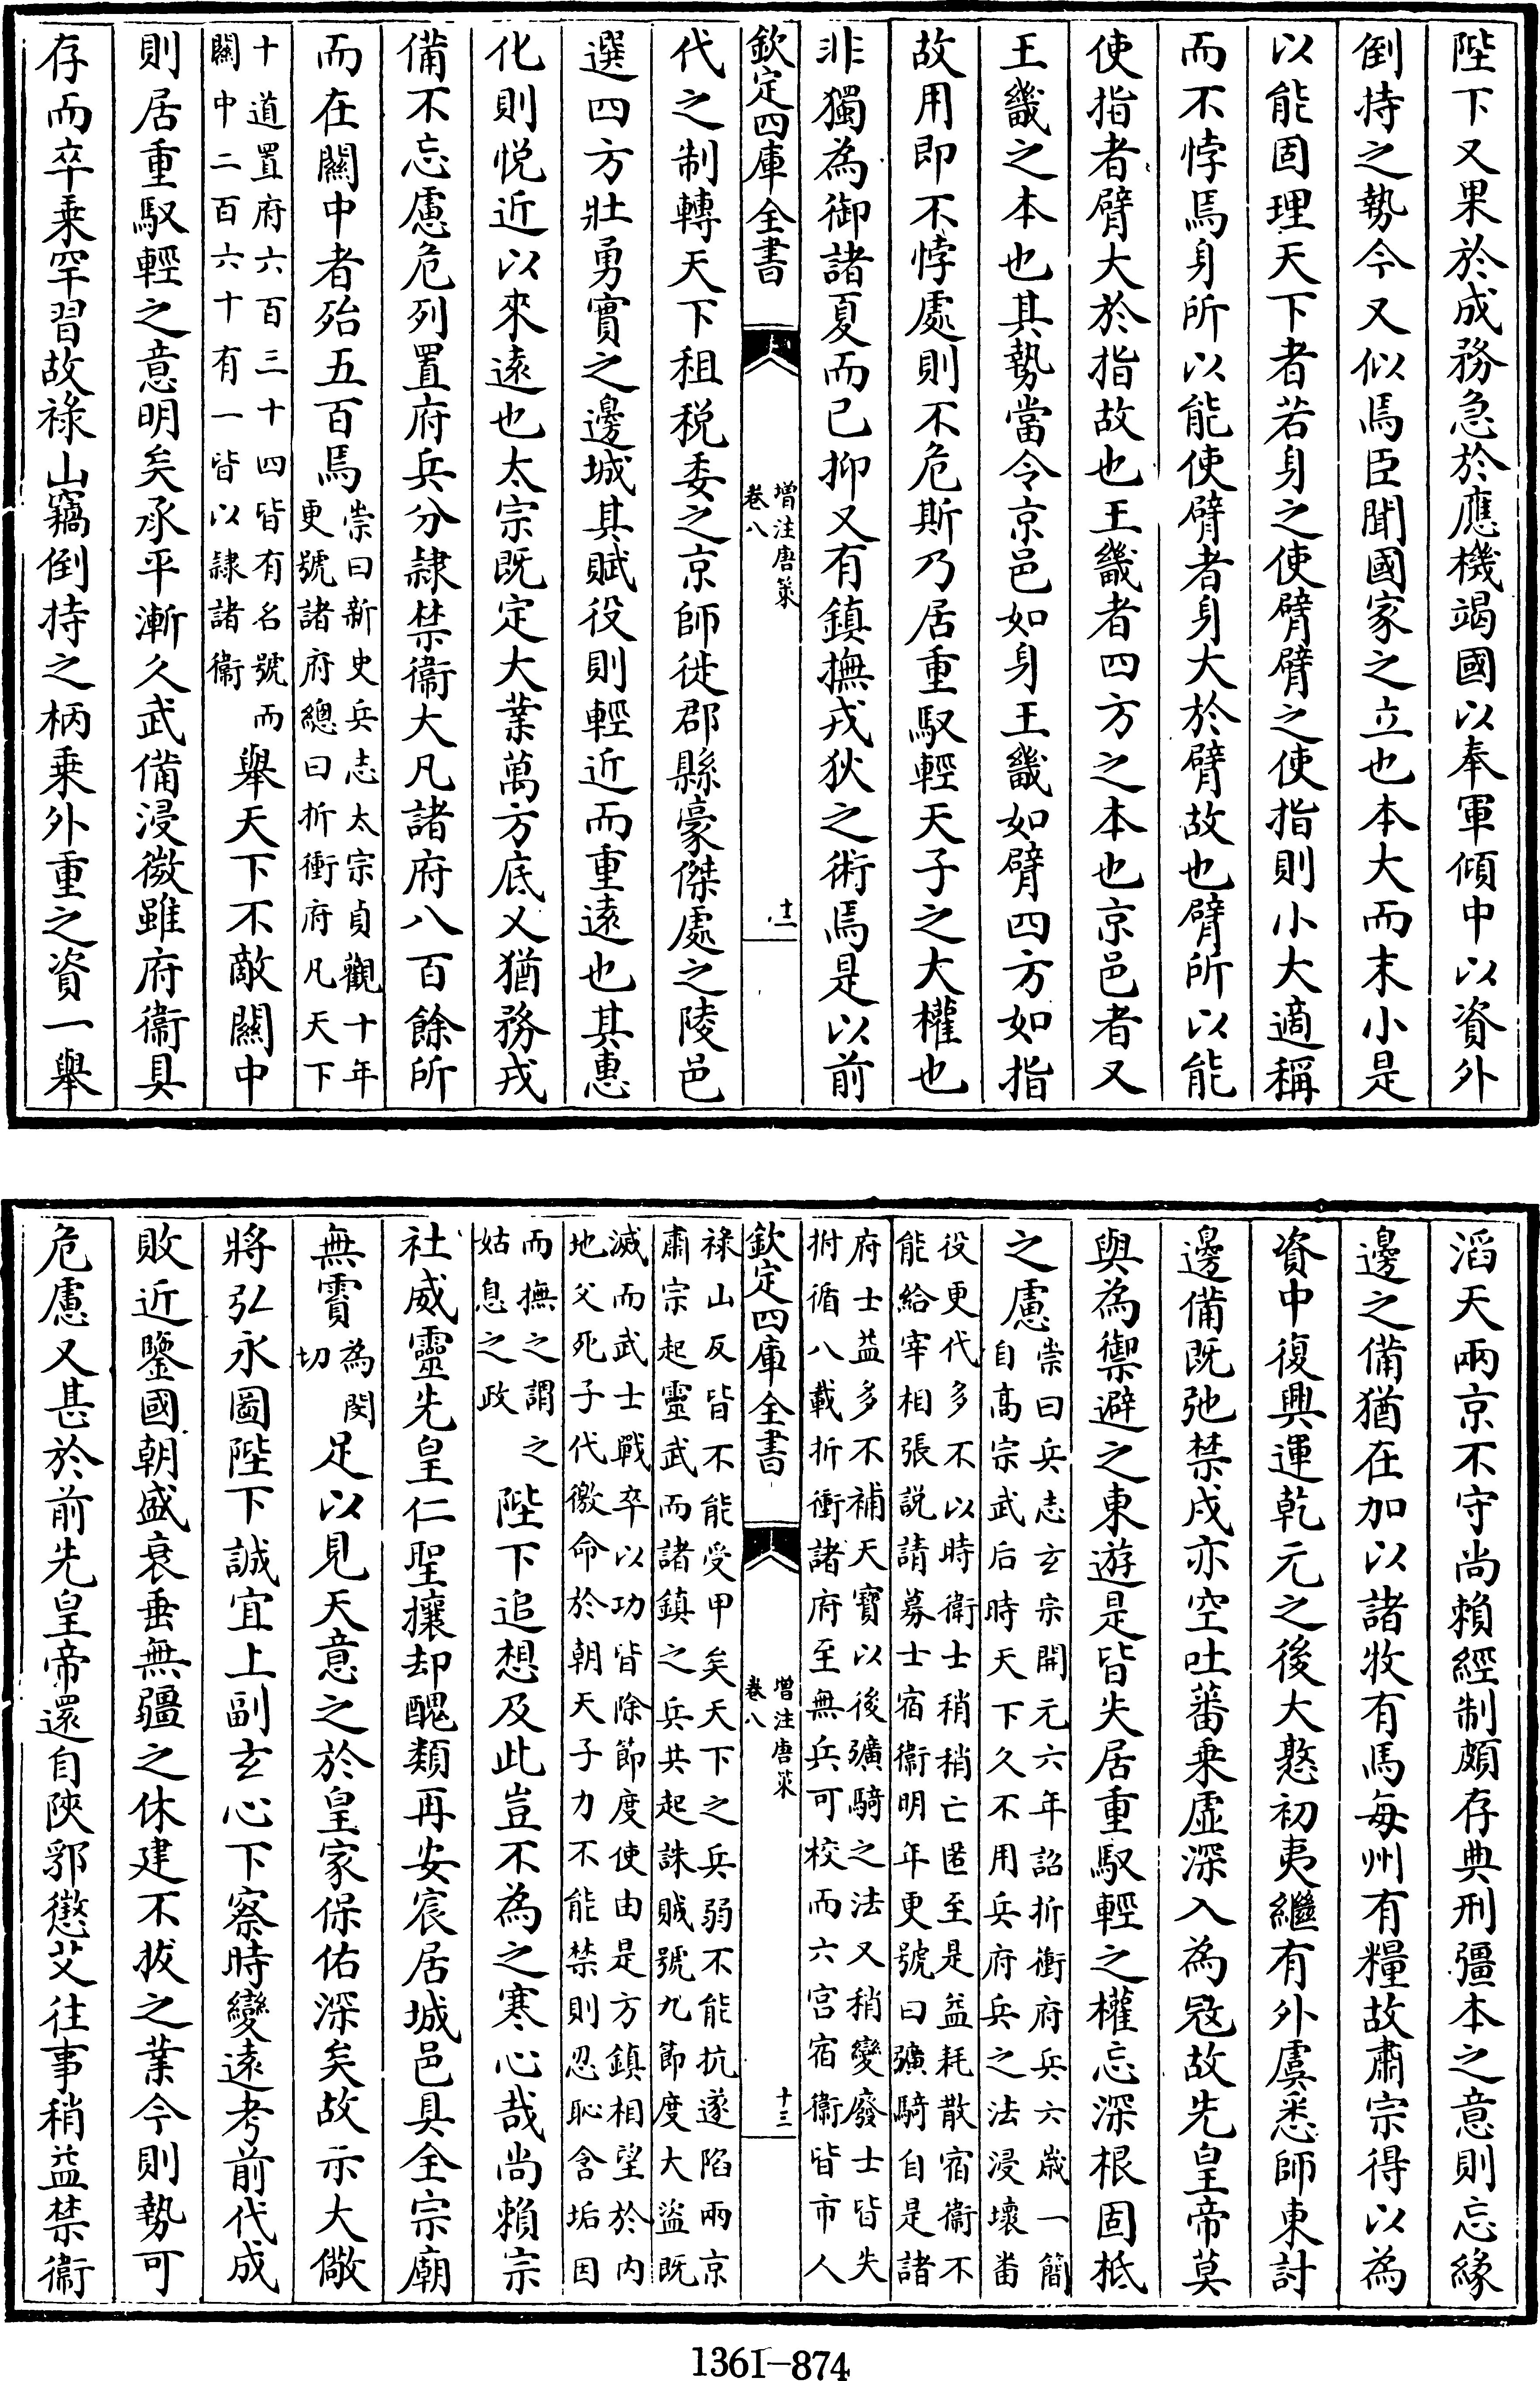 陛下又果於成務急於應機竭國以奉軍傾中以資外
倒持之勢今又似焉臣聞國家之立也本大而末小是
以能固理天下者若身之使臂臂之使指則小大適稱
而不悖焉身所以能使臂者身大於臂故也臂所以能
使指者臂大於指故也王畿者四方之本也京邑者又
王畿之本也其勢當令京邑如身王畿如臂四方如指
故用即不悖處則不危斯乃居重馭輕天子之大權也
非獨為御諸夏而已抑又有鎮撫戎狄之術焉是以前
欽定四庫全書
增注唐策
卷八
十二
代之制轉天下租税委之京師徙郡縣豪傑處之陵邑
選四方壯勇實之邊城其賦役則輕近而重遠也其惠
化則悦近以來遠也太宗既定大業萬方底乂猶務戎
備不忘慮危列置府兵分隸禁衞大凡諸府八百餘所
而在關中者殆五百焉
崇曰新史兵志太宗貞觀十年
更號諸府總曰折衝府凡天下
十道置府六百三十四皆有名號而
關中二百六十有一皆以隸諸衞
舉天下不敵關中
則居重馭輕之意明矣承平漸久武備浸微雖府衞具
存而卒乗罕習故祿山竊倒持之柄乗外重之資一舉
滔天兩京不守尚賴經制頗存典刑彊本之意則忘緣
邊之備猶在加以諸牧有馬每州有糧故肅宗得以為
資中復興運乾元之後大憝初夷繼有外虞悉師東討
邊備既弛禁戍亦空吐蕃乗虛深入為冦故先皇帝莫
與為禦避之東遊是皆失居重馭輕之權忘深根固柢
之慮
崇曰兵志玄宗開元六年詔折衝府兵六歲一簡
自高宗武后時天下久不用兵府兵之法浸壞畨
役更代多不以時衛士稍稍亡匿至是益耗散宿衞不
能給宰相張説請募士宿衞明年更號曰彍騎自是諸
府士益多不補天寶以後彍騎之法又稍變廢士皆失
拊循八載折衝諸府至無兵可校而六宫宿衞皆市人
欽定四庫全書
增注唐策
卷八
十三
祿山反皆不能受甲矣天下之兵弱不能抗遂陷兩京
肅宗起靈武而諸鎮之兵共起誅賊號九節度大盜既
滅而武士戰卒以功皆除節度使由是方鎮相望於内
地父死子代徼命於朝天子力不能禁則忍恥含垢因
而撫之謂之
姑息之政
陛下追想及此豈不為之寒心哉尚賴宗
社威靈先皇仁聖攘却醜類再安宸居城邑具全宗廟
無霣
為閔
切
足以見天意之於皇家保佑深矣故示大儆
將弘永圖陛下誠宜上副玄心下察時變遠考前代成
敗近鑒國朝盛衰垂無疆之休建不拔之業今則勢可
危慮又甚於前先皇帝還自陝郛懲艾往事稍益禁衞
1361-874